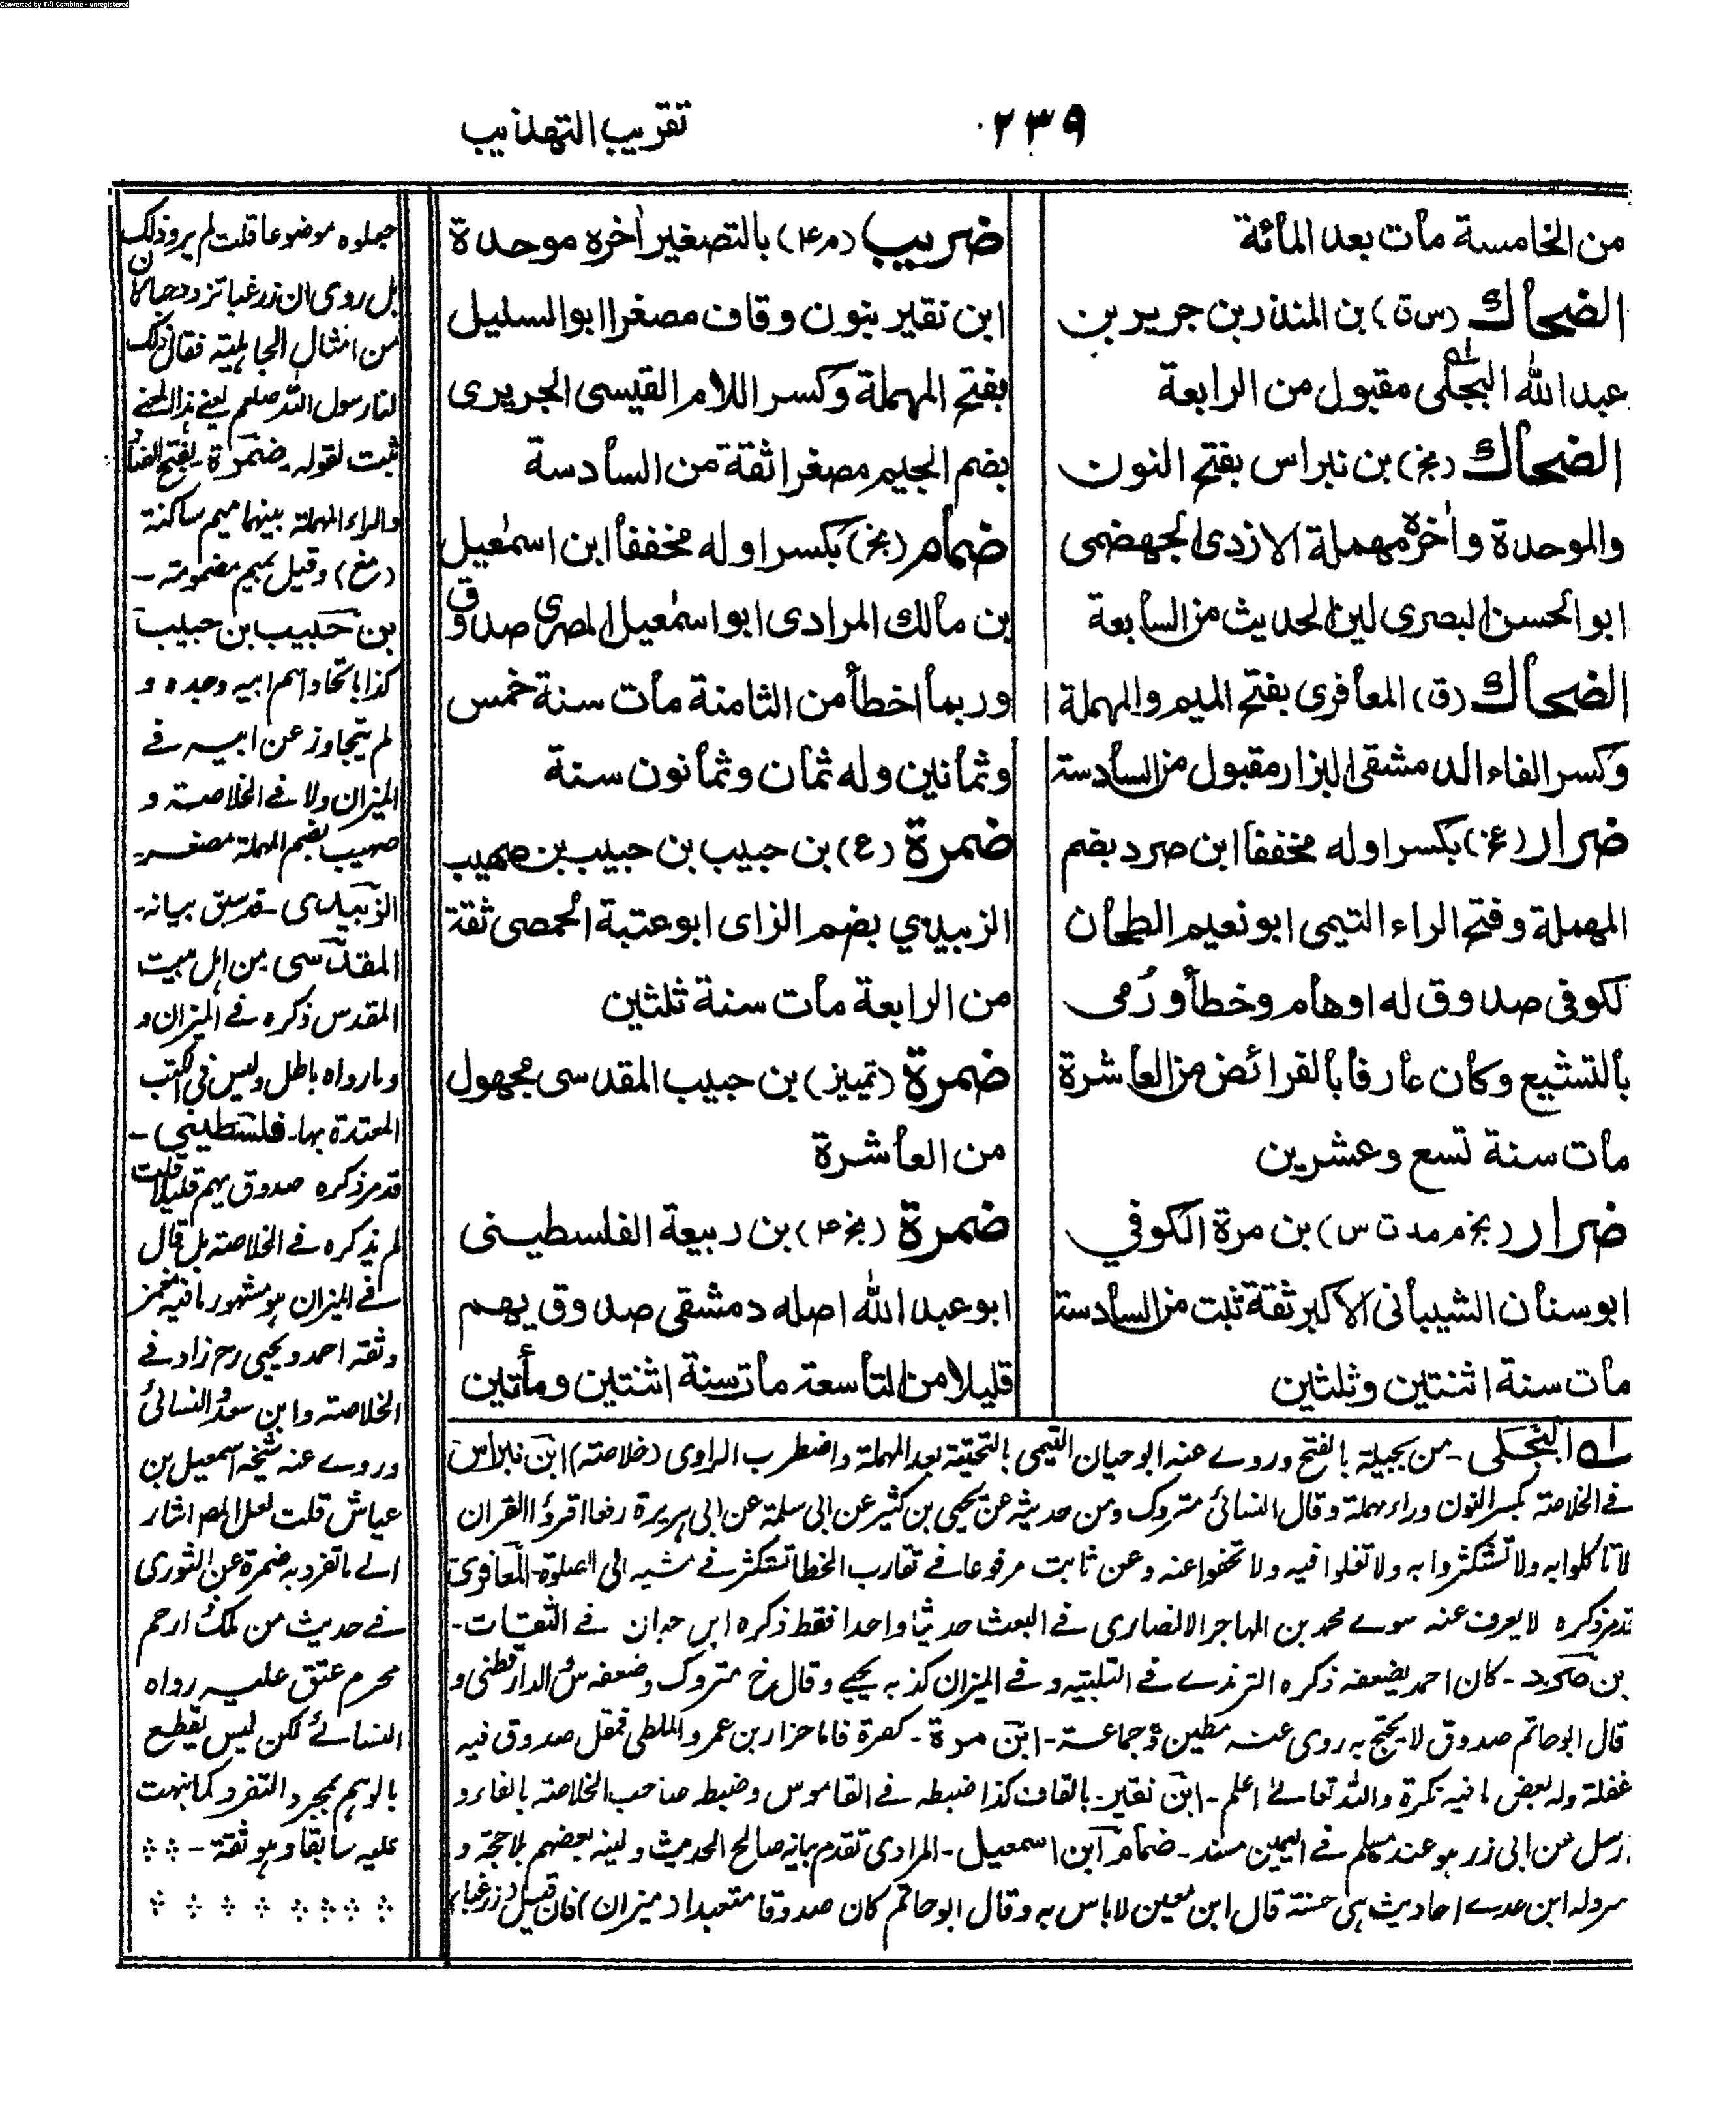 Converted by Tiff Combine - unregistered
٢٣٩
تقريب التهذيب
من الخامسة مات بعد المائة
الضحاك (س ق) بن المنذر بن جرير بن
عبد الله البجلي مقبول من الرابعة
الضحاك (بخ) بن نبراس بفتح النون
والموحدة وآخره مهملة الازدى الجهضمى
ابو الحسن البصرى لين الحديث من السابعة
الضحاك (ق) المعافرى بفتح الميم والمهملة
وكسر الفاء الدمشقى البزار مقبول من السادسة
ضرار (عخ) بكسر اوله مخففا ابن صرد بضم
المهملة وفتح الراء التيمى ابو نعيم الطحان
لكوفى صدوق له اوهام وخطأ ورُمى
بالتشيع وكان عارفا بالفرائض من العاشرة
مات سنة تسع وعشرين
ضرار (بخ م مد ت س) بن مرة الكوفي
ابو سنان الشيبانى الاكبر ثقة ثبت من السادسة
مات سنة اثنتين وثلثين
ضريب (م ۴) بالتصغير آخره موحدة
ابن نقير بنون وقاف مصغرا ابو السليل
بفتح المهملة وكسر اللام القيسى الجريرى
بضم الجيم مصغرا ثقة من السادسة
ضمام (بخ) بكسر اوله مخففا ابن اسمٰعيل
بن مالك المرادى ابو اسمٰعيل المصرى صدوق
وربما اخطأ من الثامنة مات سنة خمس
وثمانين وله ثمان وثمانون سنة
ضمرة (ع) بن حبيب بن حبيب بن صهيب
الزبيدي بضم الزاى ابو عتبة الحمصى ثقة
من الرابعة مات سنة ثلثين
ضمرة (تمييز) بن حبيب المقدسى مجهول
من العاشرة
ضمرة (بخ ۴) بن ربيعة الفلسطينى
ابو عبد الله اصله دمشقى صدوق يهم
قليلا من التاسعة مات سنة اثنتين ومأتين
له البجلى - من بجيلة بالفتح وروے عنه ابو حيان التيمى بالتحتية بعد المهملة واضطرب الراوى (خلاصة) ابن نبراس
فے الخلاصة بكسر النون وراء مهملة وقال النسائى متروك ومن حديثه عن يحيى بن كثير عن ابى سلمة عن ابى هريرة رفعا اقرؤا القران
لا تاكلوا به ولا تستكثروا به ولا تغلوا فيه ولا تجفوا عنه وعن ثابت مرفوعا فے تقارب الخطا تستكثر فے مشيه الى الصلوة - المعافرى
قد مر ذكره لا يعرف عنه سوے محمد بن المهاجر الانصارى فے البعث حديثا واحدا فقط ذكره ابن حبان فے الثقات -
بن صرد - كان احمد يضعفه ذكره الترمذے فے التلبية و فے الميزان كذبه يحيے وقال خ متروك وضعفه س والدارقطنى و
قال ابو حاتم صدوق لا يحتج به روى عنه مطين وجماعة - ابن مرة - كصرة فاما حزار بن عمرو الملطى فمقل صدوق فيه
غفلة وله بعض ما فيه نكرة والله تعالے اعلم - ابن نقير - بالقاف كذا ضبطه فے القاموس وضبطه صاحب الخلاصة بالفاء و
رسل عن ابى ذر هو عند مسلم فے اليمين مسند - ضمام ابن اسمعيل - المرادى تقدم بيانه صالح الحديث ولينه بعضهم بلا حجة و
سرد له ابن عدے احاديث هى حسنة قال ابن معين لا باس به وقال ابو حاتم كان صدوقا متعبدا (ميزان) فان قيل زر غبا
جعلوه موضوعا قلت لم يرو ذلك
بل روى ان زر غبا تزدد حبا كان
من امثال الجاهلية فقال ذلك
لنا رسول الله صلعم يعنے هذا المعنے
ثبت لقوله - ضمرة - بفتح الضاد
والراء المهملة بينهما ميم ساكنة
(مغ) وقيل بميم مضمومة -
بن حبيب بن حبيب
كذا باتحاد اسم ابيه وجده و
لم يتجاوز عن ابيه فے
الميزان ولا فے الخلاصة و
صهيب بضم المهملة مصغر -
الزبيدى - قد سبق بيانه -
المقدسى من اهل بيت
المقدس ذكره فے الميزان و
ما رواه باطل وليس فى الكتب
المعتدة بها - فلسطينى -
قد مر ذكره صدوق يهم قليلا قلت
لم يذكره فے الخلاصة بل قال
فے الميزان هو مشهور ما فيه مغمز
وثقه احمد ويحيى رح زاد فے
الخلاصة وابن سعد والنسائى
وروے عنه شيخه اسمعيل بن
عياش قلت لعل المص اشار
الے ما تفرد به ضمرة عن الثورى
فے حديث من ملك ذا رحم
محرم عتق عليه رواه
النسائے لكن ليس يقطع
بالوهم بمجرد التفرد كما نبهت
عليه سابقا وهو ثقة -